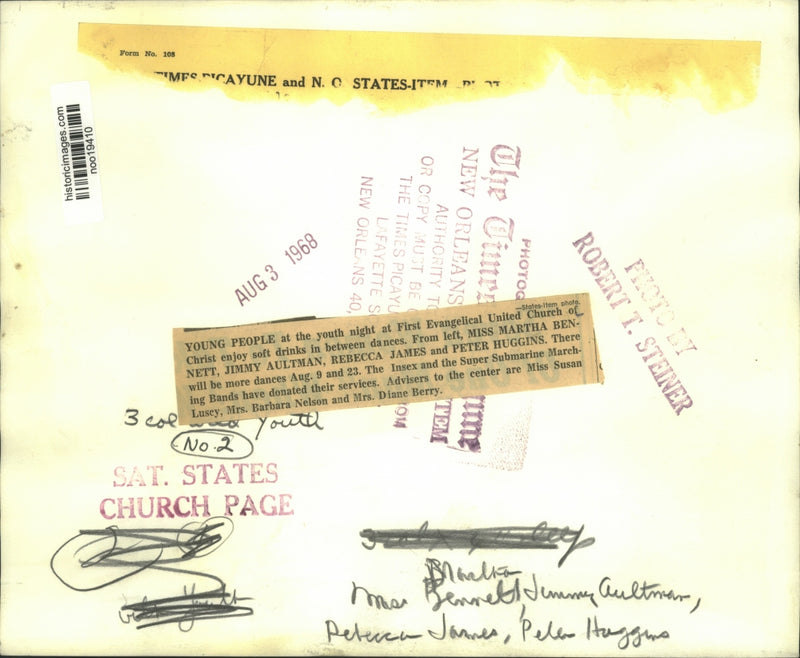 Form No. 108
TIMES-PICAYUNE and N. O. STATES-ITEM
historicimages.com
noo19410
AUG 3 1968
The Times
NEW ORLEANS
AUTHORITY TO
OR COPY MUST BE
THE TIMES PICAYU
LAFAYETTE S
NEW ORLEANS 40,
PHOTO BY
ROBERT T. STEINER
—States-Item photo.
YOUNG PEOPLE at the youth night at First Evangelical United Church of
Christ enjoy soft drinks in between dances. From left, MISS MARTHA BEN-
NETT, JIMMY AULTMAN, REBECCA JAMES and PETER HUGGINS. There
will be more dances Aug. 9 and 23. The Insex and the Super Submarine March-
ing Bands have donated their services. Advisers to the center are Miss Susan
Luscy, Mrs. Barbara Nelson and Mrs. Diane Berry.
3 col Youth
No. 2
SAT. STATES
CHURCH PAGE
Martha
Miss Bennett, Jimmy Aultman,
Rebecca James, Peter Huggins